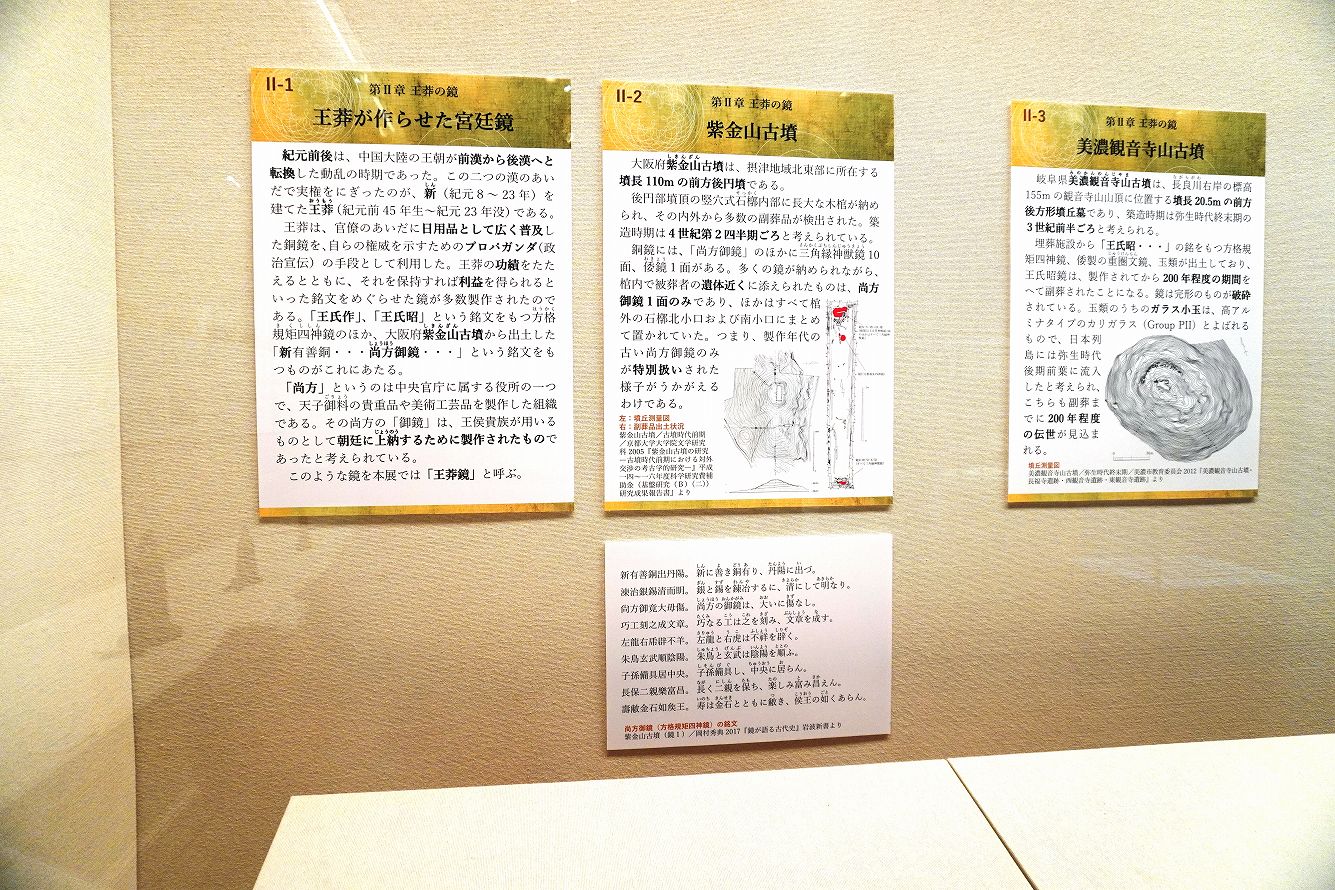 II-1
第Ⅱ章 王莽の鏡
王莽が作らせた宮廷鏡
紀元前後は、中国大陸の王朝が前漢から後漢へと
転換した動乱の時期であった。この二つの漢のあい
だで実権をにぎったのが、新（紀元8～23年）を
建てた王莽（紀元前45年生～紀元23年没）である。
王莽は、官僚のあいだに日用品として広く普及し
た銅鏡を、自らの権威を示すためのプロパガンダ（政
治宣伝）の手段として利用した。王莽の功績をたた
えるとともに、それを保持すれば利益を得られると
いった銘文をめぐらせた鏡が多数製作されたので
ある。「王氏作」、「王氏昭」という銘文をもつ方格
規矩四神鏡のほか、大阪府紫金山古墳から出土した
「新有善銅・・・尚方御鏡・・・」という銘文をも
つものがこれにあたる。
「尚方」というのは中央官庁に属する役所の一つ
で、天子御料の貴重品や美術工芸品を製作した組織
である。その尚方の「御鏡」は、王侯貴族が用いる
ものとして朝廷に上納するために製作されたもので
あったと考えられている。
このような鏡を本展では「王莽鏡」と呼ぶ。
II-2
第Ⅱ章 王莽の鏡
紫金山古墳
大阪府紫金山古墳は、摂津地域北東部に所在する
墳長110mの前方後円墳である。
後円部墳頂の竪穴式石槨内部に長大な木棺が納め
られ、その内外から多数の副葬品が検出された。築
造時期は4世紀第2四半期ごろと考えられている。
銅鏡には、「尚方御鏡」のほかに三角縁神獣鏡10
面、倭鏡1面がある。多くの鏡が納められながら、
棺内で被葬者の遺体近くに添えられたものは、尚方
御鏡1面のみであり、ほかはすべて棺
外の石槨北小口および南小口にまとめ
て置かれていた。つまり、製作年代の
古い尚方御鏡のみ
が特別扱いされた
様子がうかがえる
わけである。
左：墳丘測量図
右：副葬品出土状況
紫金山古墳／古墳時代前期
／京都大学大学院文学研究
科2005『紫金山古墳の研究
―古墳時代前期における対外
交渉の考古学的研究―』平成
一四～一六年度科学研究費補
助金（基盤研究（B）（二））
研究成果報告書』より
II-3
第Ⅱ章 王莽の鏡
美濃観音寺山古墳
岐阜県美濃観音寺山古墳は、長良川右岸の標高
155mの観音寺山山頂に位置する墳長20.5mの前方
後方形墳丘墓であり、築造時期は弥生時代終末期の
3世紀前半ごろと考えられる。
埋葬施設から「王氏昭・・・」の銘をもつ方格規
矩四神鏡、倭製の重圏文鏡、玉類が出土しており、
王氏昭鏡は、製作されてから200年程度の期間を
へて副葬されたことになる。鏡は完形のものが破砕
されている。玉類のうちのガラス小玉は、高アル
ミナタイプのカリガラス（Group PII）とよばれる
もので、日本列
島には弥生時代
後期前葉に流入
したと考えられ、
こちらも副葬ま
でに200年程度
の伝世が見込ま
れる。
墳丘測量図
美濃観音寺山古墳／弥生時代終末期／美濃市教育委員会2012『美濃観音寺山古墳・
長福寺遺跡・西観音寺遺跡・東観音寺遺跡』より
新有善銅出丹陽。 新に善き銅有り、丹陽に出づ。
湅治銀錫清而明。 銀と錫を錬冶するに、清にして明なり。
尚方御竟大毋傷。 尚方の御鏡は、大いに傷なし。
巧工刻之成文章。 巧なる工は之を刻み、文章を成す。
左龍右乕辟不羊。 左龍と右虎は不祥を辟く。
朱鳥玄武順陰陽。 朱鳥と玄武は陰陽を順ふ。
子孫備具居中央。 子孫備具し、中央に居らん。
長保二親樂富昌。 長く二親を保ち、楽しみ富み昌えん。
壽敝金石如矦王。 寿は金石とともに敝き、侯王の如くあらん。
尚方御鏡（方格規矩四神鏡）の銘文
紫金山古墳（鏡1）／岡村秀典2017『鏡が語る古代史』岩波新書より